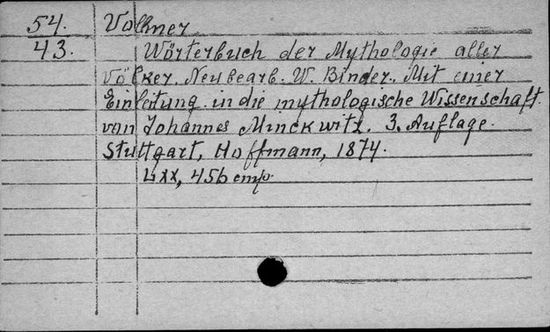 54. Vollmer
43. Wörterbuch der Mythologie aller
Völker. Neubearb. W. Binder. Mit einer
Einleitung in die mythologische Wissenschaft
von Johannes Minckwitz. 3. Auflage.
Stuttgart, Hoffmann, 1874.
Lxx, 456 стр.